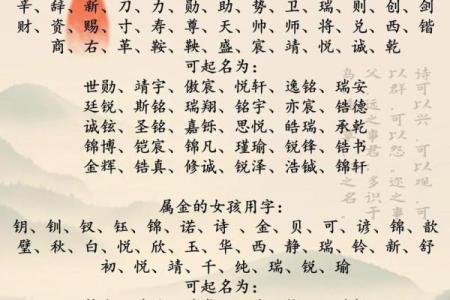 辛、辞、新、刀、力、勋、助、势、卫、瑞、则、创、剑
财、资、赐、寸、寿、尊、天、帅、师、将、兑、西、锴
商、右、革、鞍、鞅、盛、宸、靖、悦、诚、乾
可起名为:
世勋、靖宇、傲宸、悦轩、逸铭、瑞安
廷锐、斯铭、瑞翔、铭宇、亦宸、锆德
诚铉、圣铭、嘉铄、思悦、皓瑞、承乾
锦博、铠宸、锦凡、瑾瑜、锐锋、锆书
金辉、锆真、修诚、锐泽、浩铖、锦轩
属金的女孩用字:
钥、钏、钗、钰、锦、诺、诗、金、贝、可、谚、锦、歆
璧、秋、白、悦、欣、玉、华、西、静、瑞、铃、新、舒
初、悦、靖、千、纯、瑞、锐、瑜
可起名为:
诗可以兴,可以观,可
以群,可以怨。迩之事
父,远之事君;多识于
鸟
之名